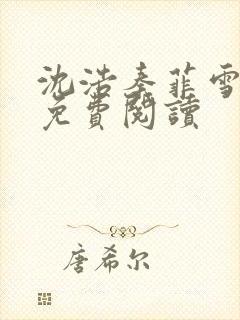 沈浩秦菲雪
免費閱讀
唐希尔